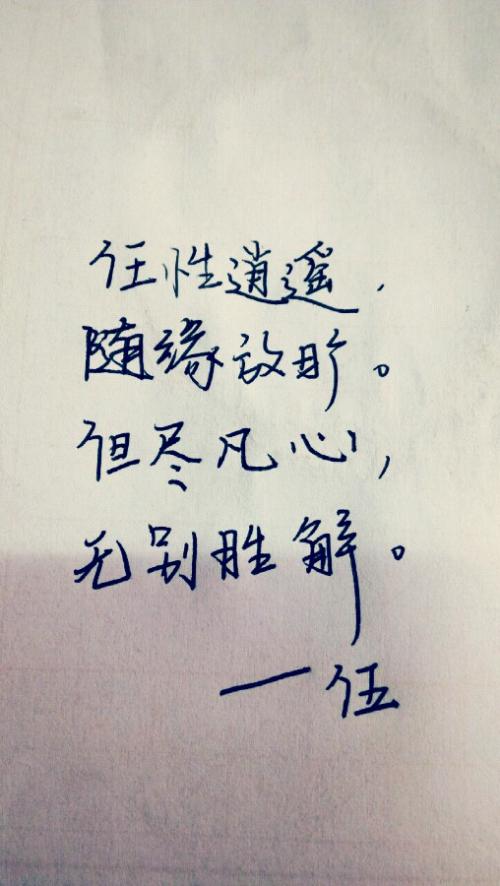 任性逍遥，
随缘放旷。
但尽凡心，
无别胜解。
一伍